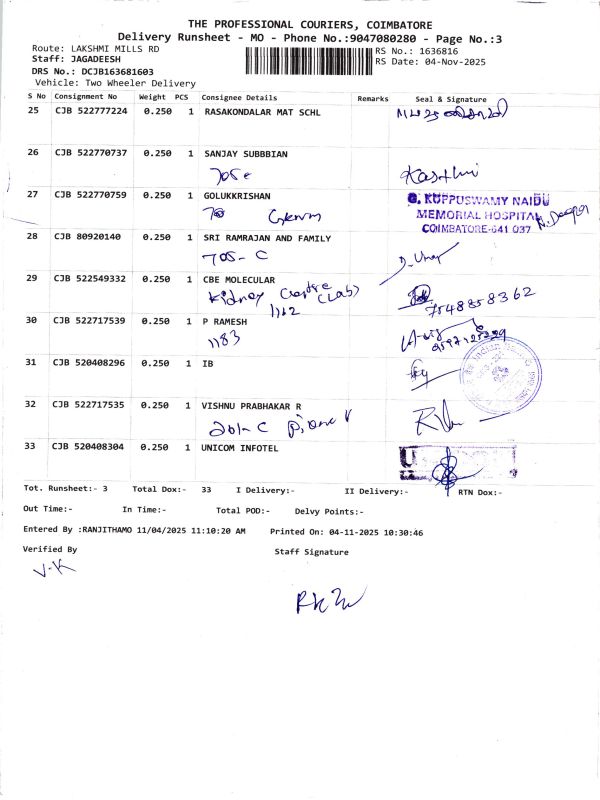 THE PROFESSIONAL COURIERS, COIMBATORE
Delivery Runsheet - MO - Phone No.:9047080280 - Page No.:3
Route: LAKSHMI MILLS RD RS No.: 1636816
Staff: JAGADEESH RS Date: 04-Nov-2025
DRS No.: DCJB163681603
Vehicle: Two Wheeler Delivery
S No Consignment No Weight PCS Consignee Details Remarks Seal & Signature
25 CJB 522777224 0.250 1 RASAKONDALAR MAT SCHL
26 CJB 522770737 0.250 1 SANJAY SUBBBIAN
705e Kasthuri
27 CJB 522770759 0.250 1 GOLUKKRISHAN
G. KUPPUSWAMY NAIDU
MEMORIAL HOSPITAL
COIMBATORE-641 037
28 CJB 80920140 0.250 1 SRI RAMRAJAN AND FAMILY
705- C
29 CJB 522549332 0.250 1 CBE MOLECULAR
Kidney Centre (Lab)
1162 7548858362
30 CJB 522717539 0.250 1 P RAMESH
1183
31 CJB 520408296 0.250 1 IB
32 CJB 522717535 0.250 1 VISHNU PRABHAKAR R
201-C
33 CJB 520408304 0.250 1 UNICOM INFOTEL
Tot. Runsheet:- 3 Total Dox:- 33 I Delivery:- II Delivery:- RTN Dox:-
Out Time:- In Time:- Total POD:- Delvy Points:-
Entered By :RANJITHAMO 11/04/2025 11:10:20 AM Printed On: 04-11-2025 10:30:46
Verified By Staff Signature
V.K